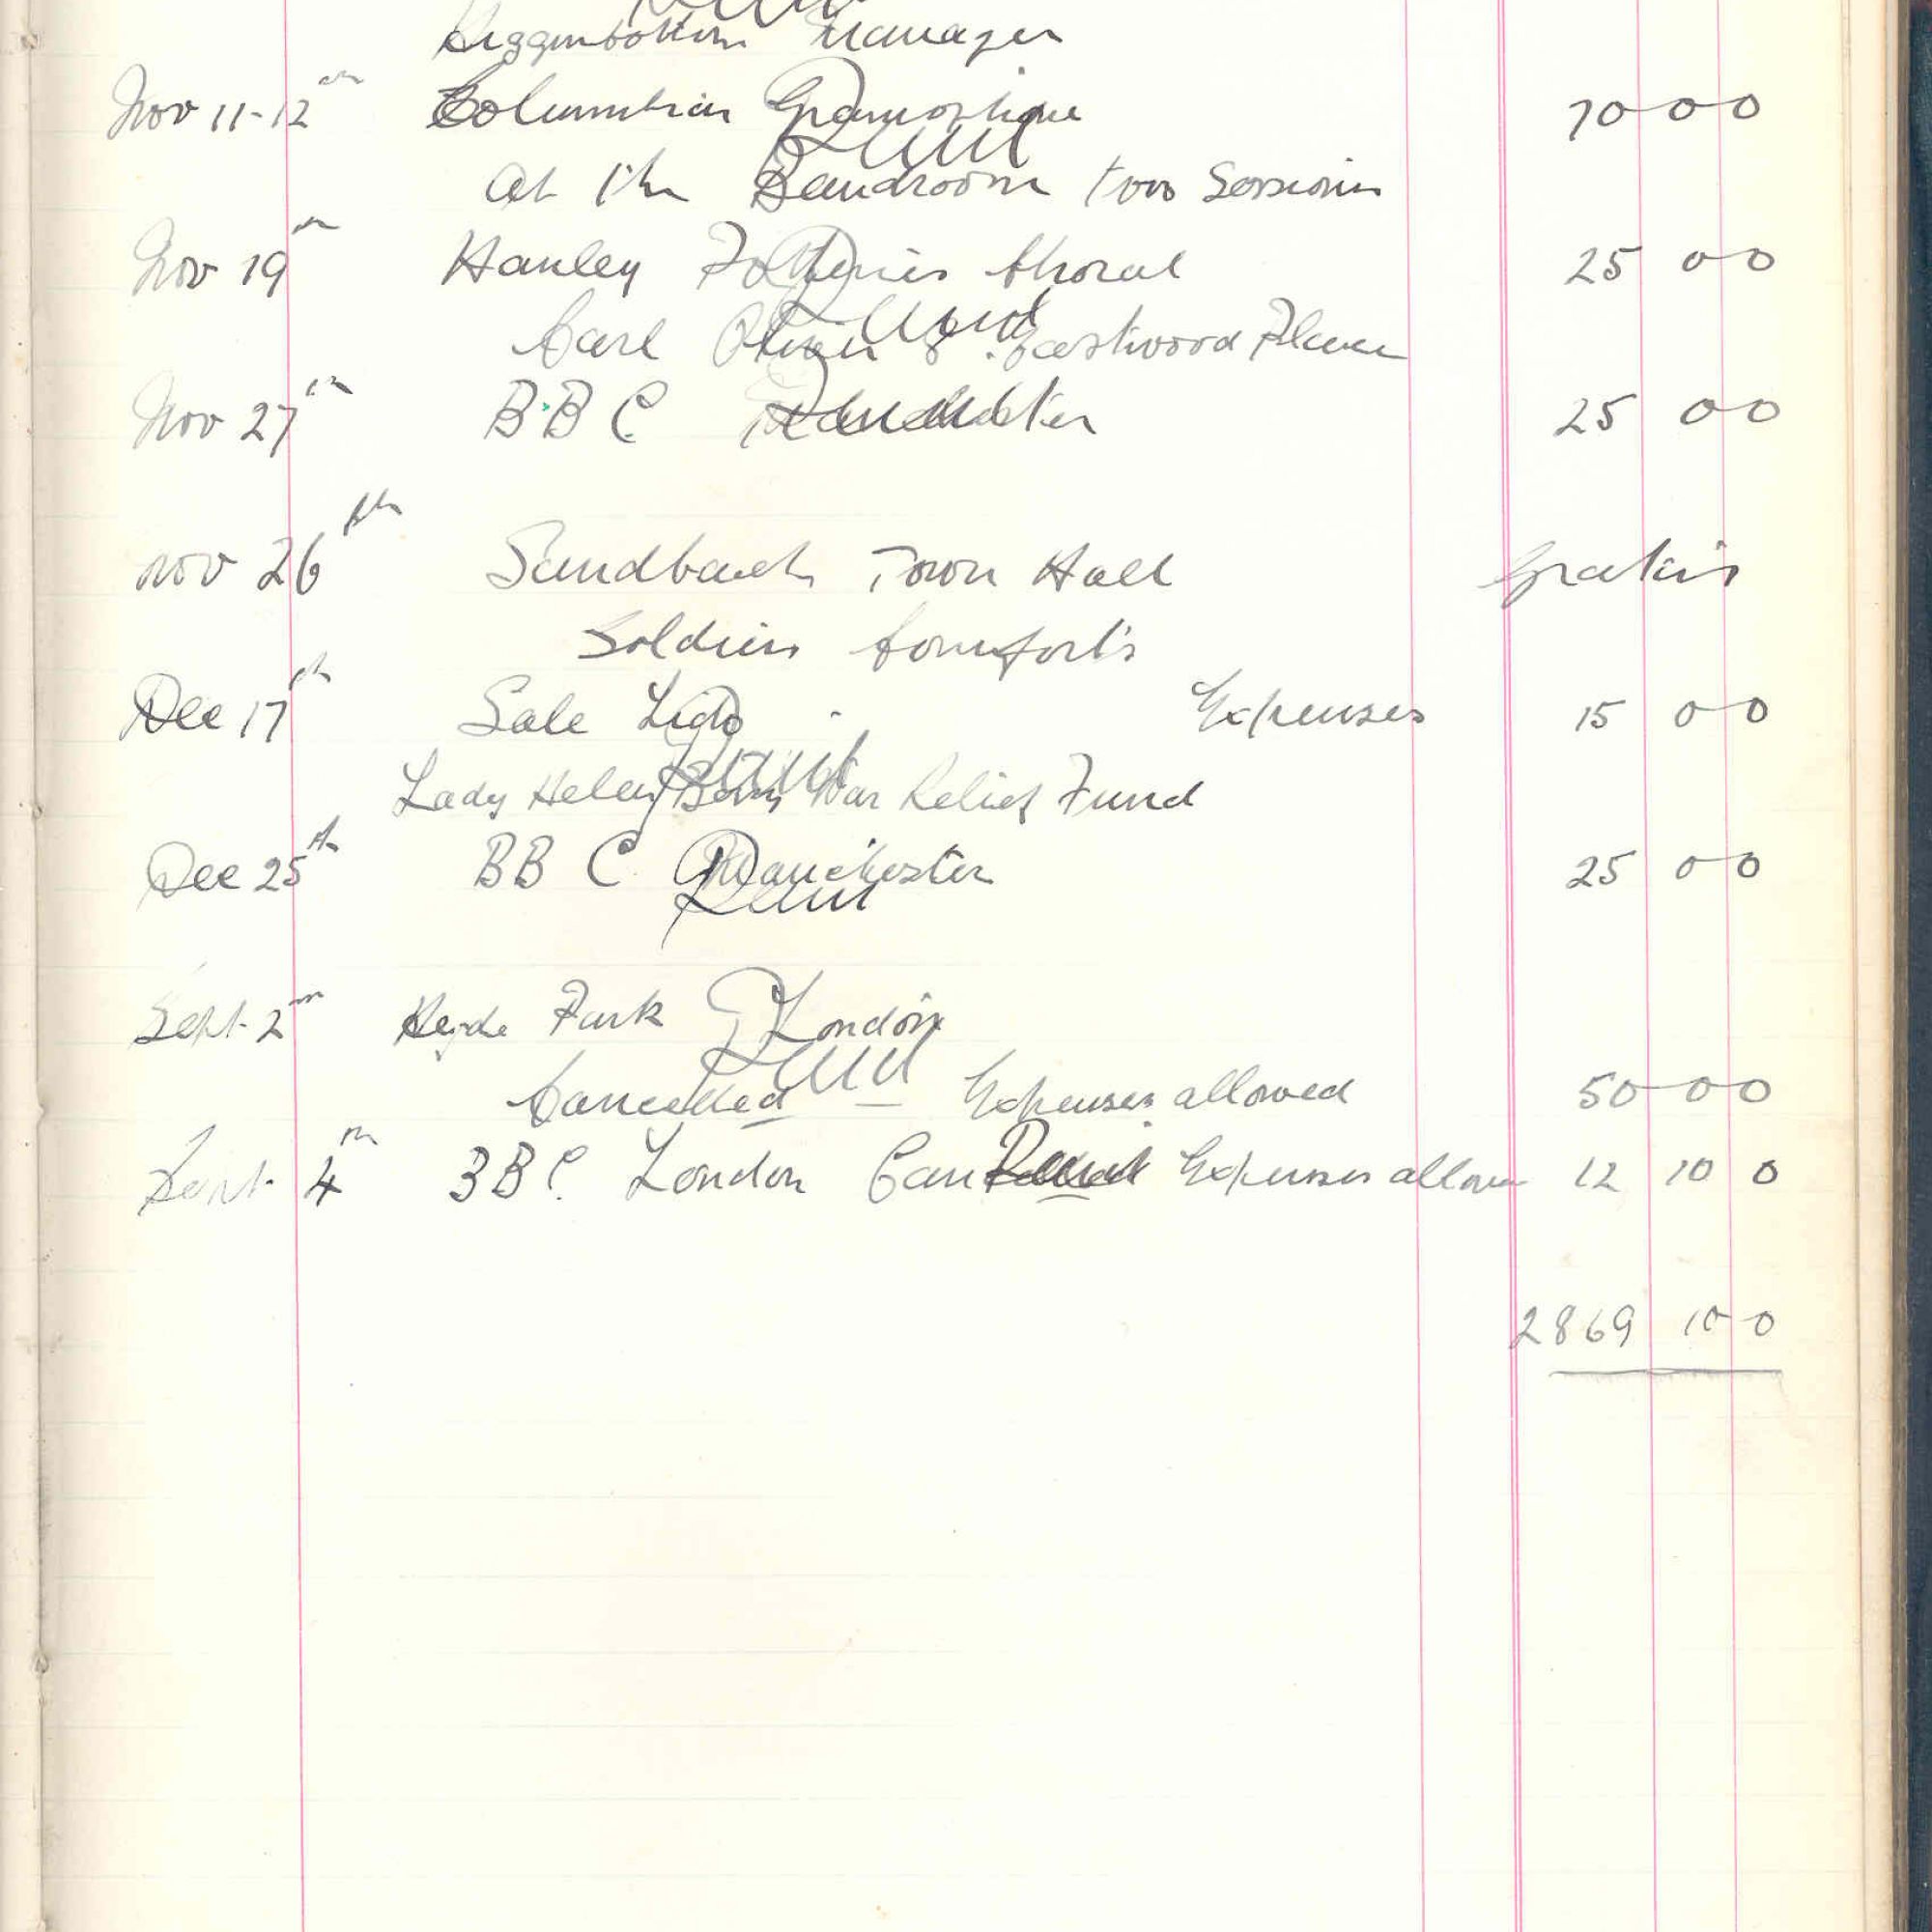 Higginbottom Manager
Nov 11-12th Columbia Gramophone 70 0 0
Paid
At the Bandroom two Sessions
Nov 19th Hanley Potteries Choral 25 0 0
Paid
Carl Oliver 8 Eastwood Place
Nov 27th B.B.C. Manchester 25 0 0
Paid
Nov 26th Sandbach Town Hall Gratis
Soldiers Comforts
Dec 17th Sale Lido - Expenses 15 0 0
Paid
Lady Helen War Relief Fund
Dec 25th BBC. Manchester 25 0 0
Paid
Sept 2nd Hyde Park London
Paid
Cancelled — Expenses allowed 50 0 0
Sept 4th BBC. London Cancelled Paid Expenses allow 12 10 0
2869 10 0